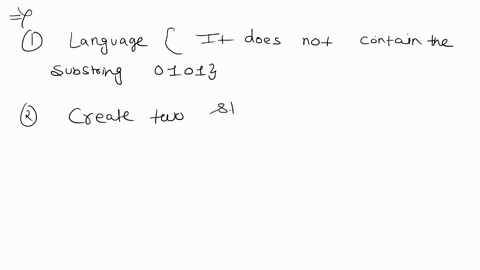 ① Language { It does not contain the
substring 0101}
② Create two st